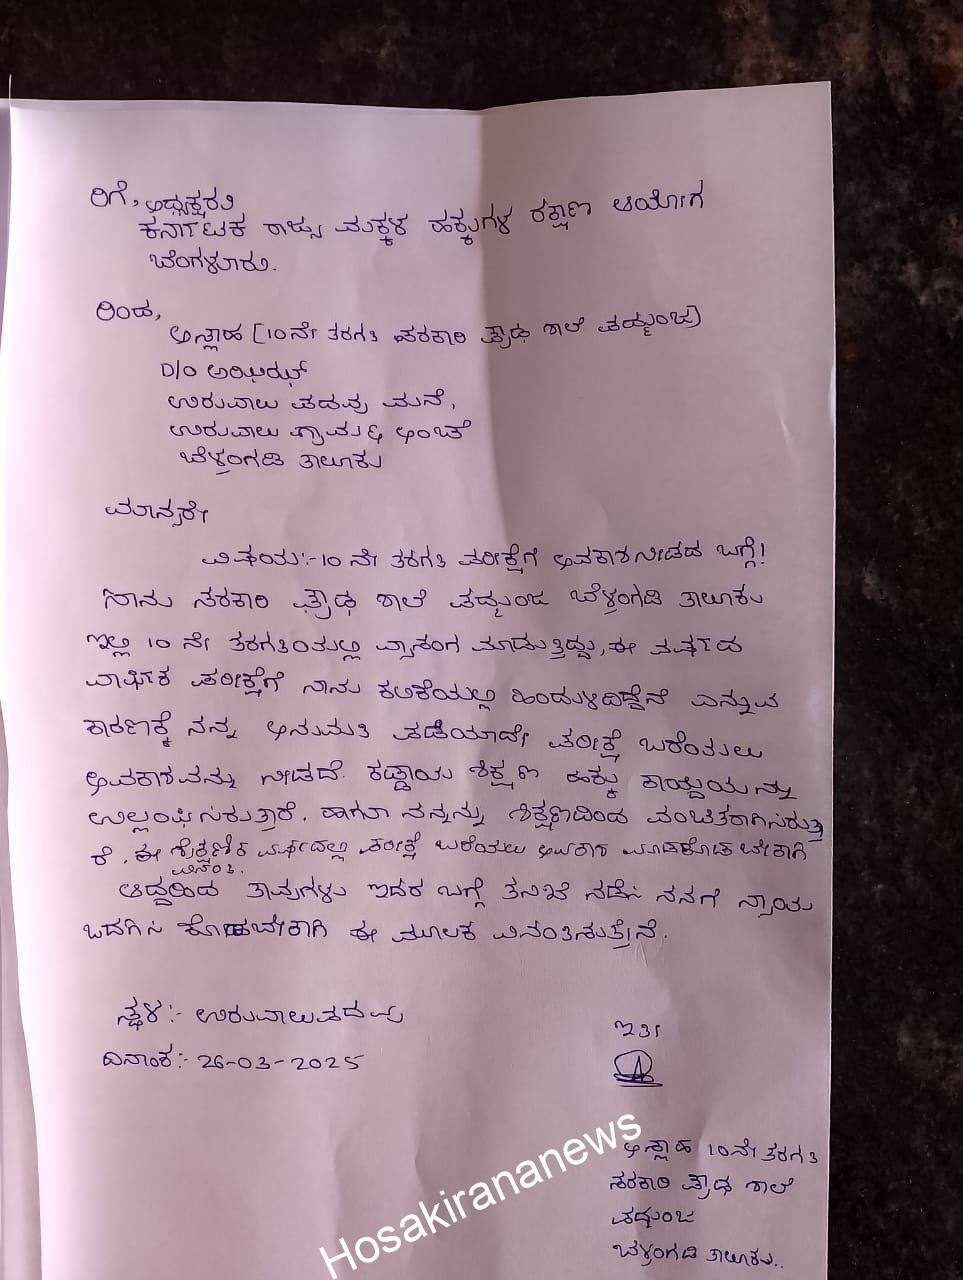 ರಿಗೆ, ಅಧ್ಯಕ್ಷರು
ಕರ್ನಾಟಕ ರಾಜ್ಯ ಮಕ್ಕಳ ಹಕ್ಕುಗಳ ರಕ್ಷಣಾ ಆಯೋಗ
ಬೆಂಗಳೂರು.
ರಿಂದ,
[10ನೇ ತರಗತಿ ಸರಕಾರಿ ಪ್ರೌಢ ಶಾಲೆ ಪದ್ಮುಂಜ]
D/O
ಉರುವಾಲು ಪದವು ಮನೆ,
ಉರುವಾಲು ಗ್ರಾಮ & ಅಂಚೆ
ಬೆಳ್ತಂಗಡಿ ತಾಲೂಕು
ಮಾನ್ಯರೇ
ವಿಷಯ:- 10 ನೇ ತರಗತಿ ಪರೀಕ್ಷೆಗೆ ಅವಕಾಶ ನೀಡದ ಬಗ್ಗೆ!
ನಾನು ಸರಕಾರಿ ಪ್ರೌಢ ಶಾಲೆ ಪದ್ಮುಂಜ ಬೆಳ್ತಂಗಡಿ ತಾಲೂಕು
ಇಲ್ಲಿ 10 ನೇ ತರಗತಿಯಲ್ಲಿ ವ್ಯಾಸಂಗ ಮಾಡುತ್ತಿದ್ದು, ಈ ವರ್ಷದ
ವಾರ್ಷಿಕ ಪರೀಕ್ಷೆಗೆ ನಾನು ಕಲಿಕೆಯಲ್ಲಿ ಹಿಂದುಳಿದಿದ್ದೇನೆ ಎನ್ನುವ
ಕಾರಣಕ್ಕೆ ನನ್ನ ಅನುಮತಿ ಪಡೆಯದೇ ಪರೀಕ್ಷೆ ಬರೆಯಲು
ಅವಕಾಶವನ್ನು ನೀಡದೆ. ಕಡ್ಡಾಯ ಶಿಕ್ಷಣ ಹಕ್ಕು ಕಾಯ್ದೆಯನ್ನು
ಉಲ್ಲಂಘಿಸಿರುತ್ತಾರೆ. ಹಾಗೂ ನನ್ನನ್ನು ಶಿಕ್ಷಣದಿಂದ ವಂಚಿತರಾಗಿಸಿರುತ್ತಾ
ರೆ. ಈ ಶೈಕ್ಷಣಿಕ ವರ್ಷದಲ್ಲಿ ಪರೀಕ್ಷೆ ಬರೆಯಲು ಅವಕಾಶ ಮಾಡಿಕೊಡ ಬೇಕಾಗಿ
ವಿನಂತಿ.
ಆದ್ದರಿಂದ ತಾವುಗಳು ಇದರ ಬಗ್ಗೆ ತನಿಖೆ ನಡೆಸಿ ನನಗೆ ನ್ಯಾಯ
ಒದಗಿಸಿ ಕೊಡಬೇಕಾಗಿ ಈ ಮೂಲಕ ವಿನಂತಿಸುತ್ತೇನೆ.
ಸ್ಥಳ:- ಉರುವಾಲುಪದವು
ದಿನಾಂಕ:- 26-03-2025
ಇತಿ
10ನೇ ತರಗತಿ
ಸರಕಾರಿ ಪ್ರೌಢ ಶಾಲೆ
ಪದ್ಮುಂಜ
ಬೆಳ್ತಂಗಡಿ ತಾಲೂಕು..
Hosakirananews